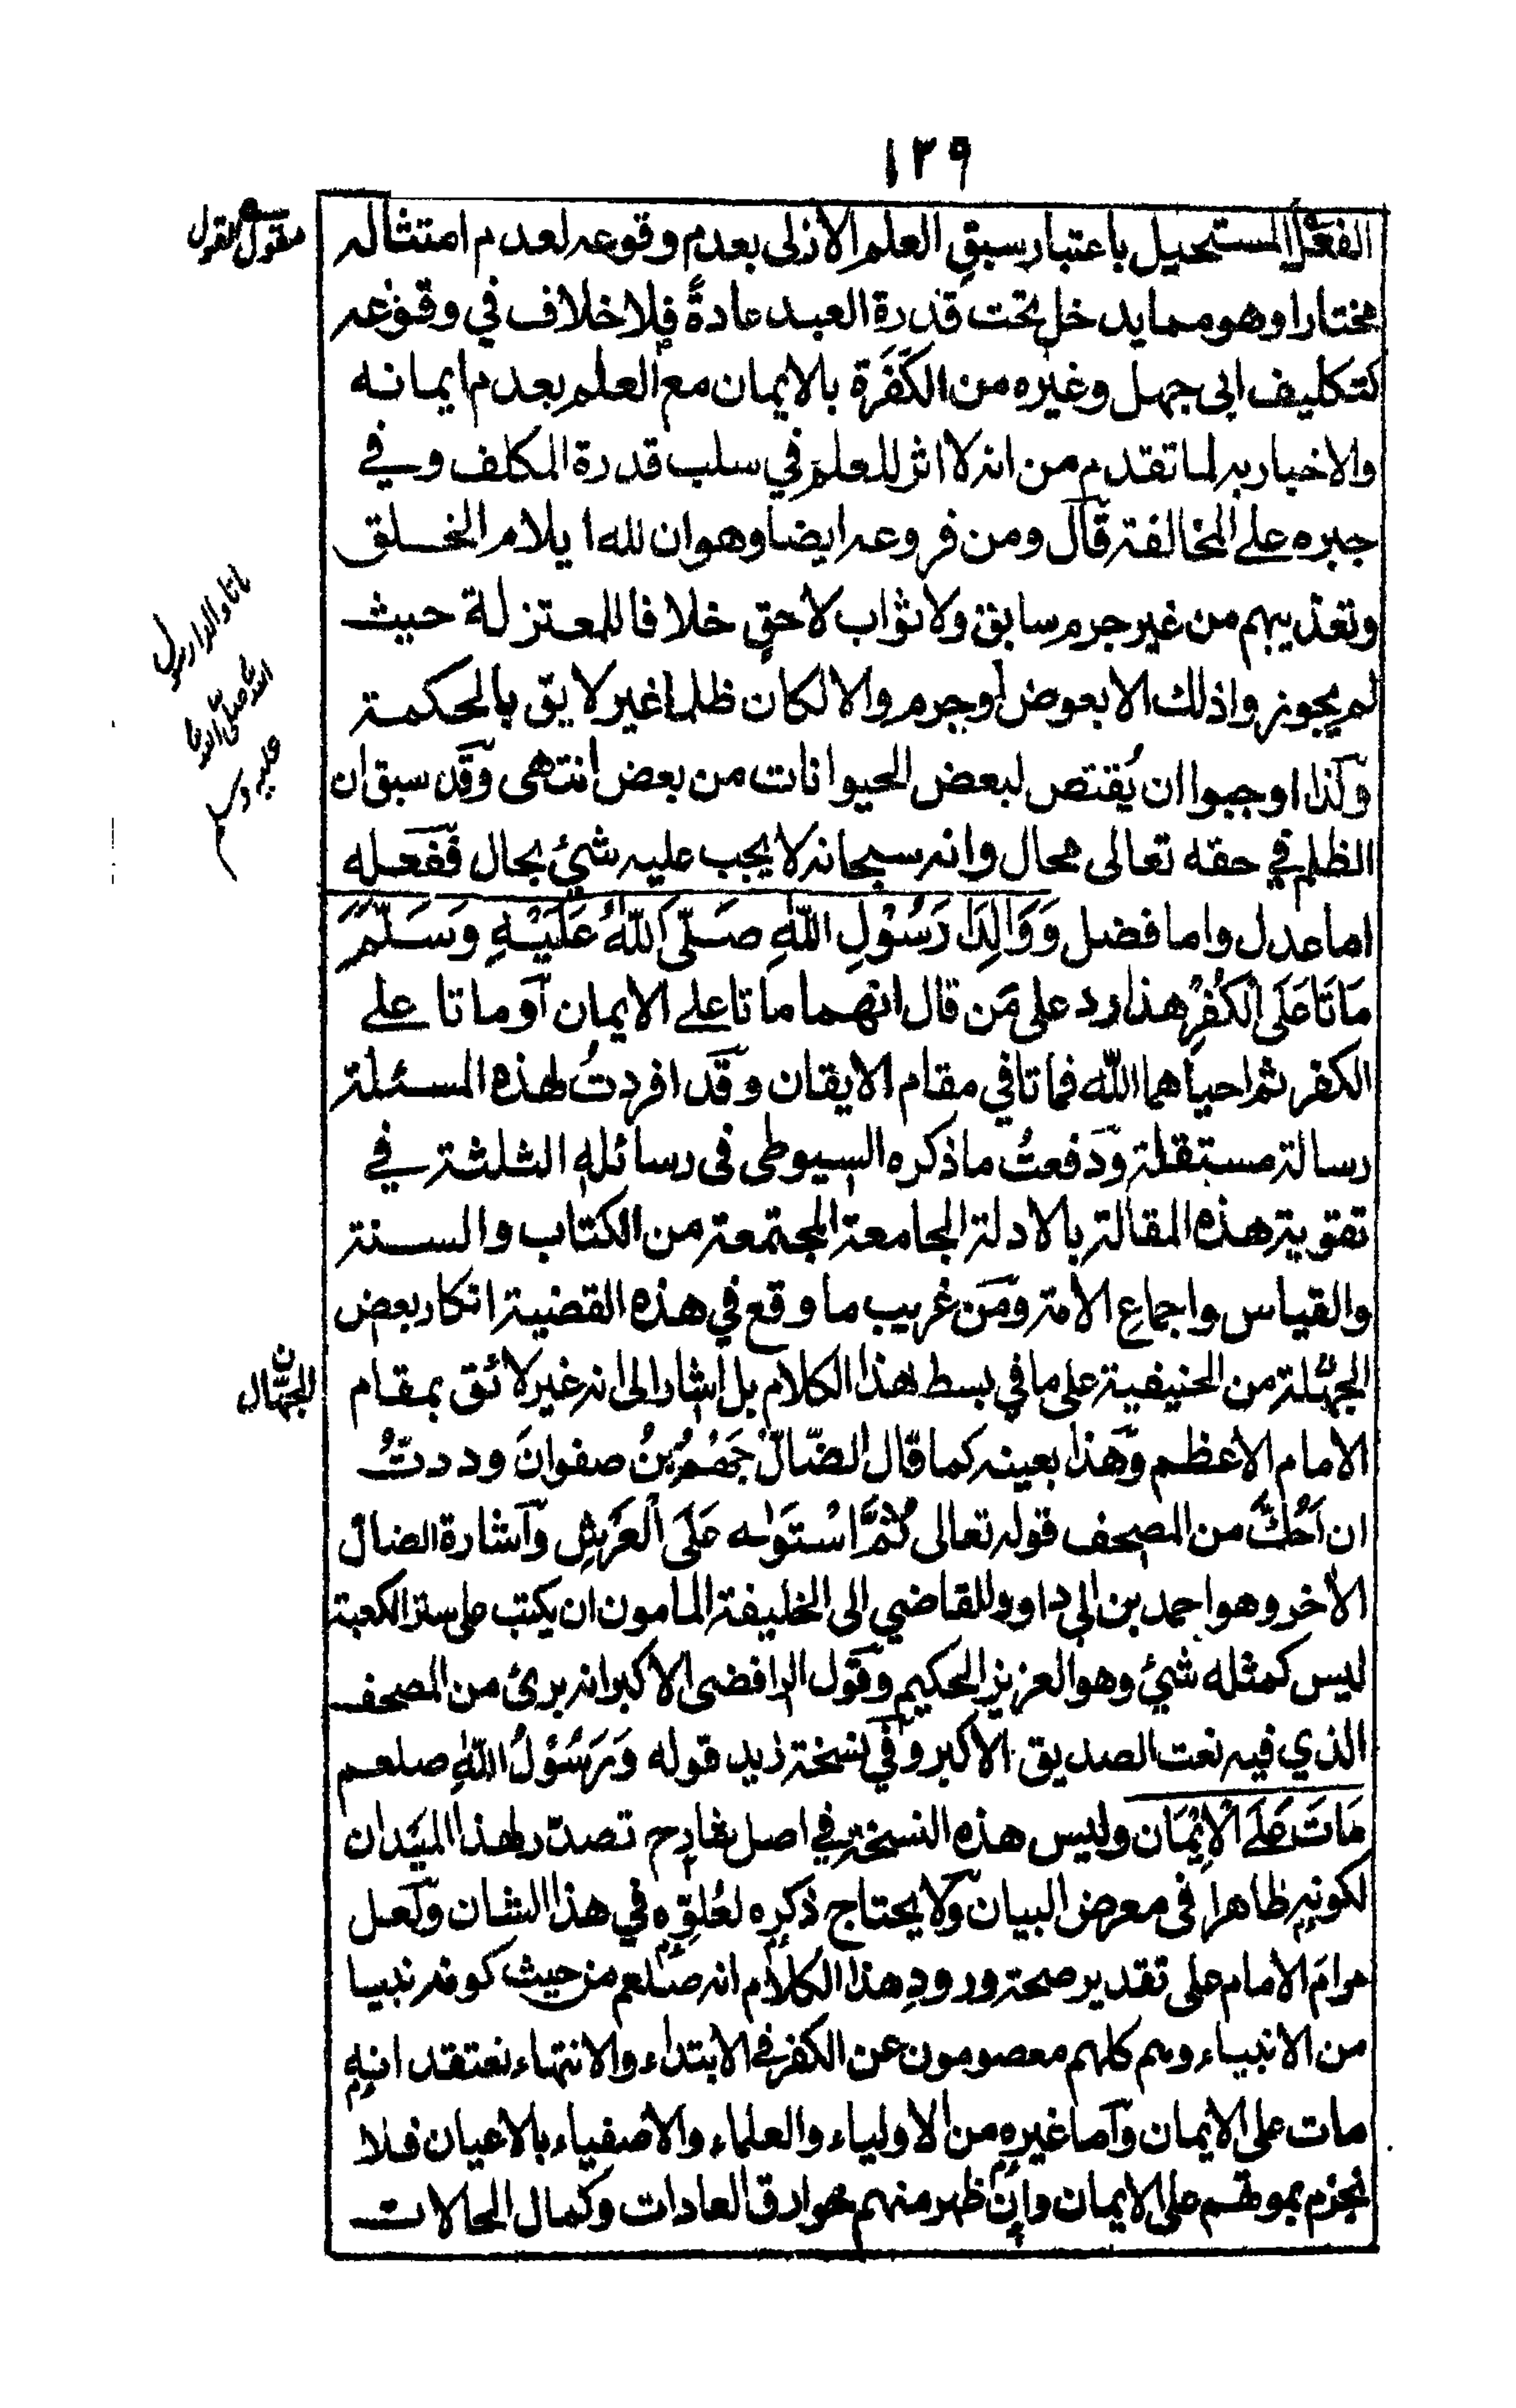 ١٣٩
الفعل المستحيل باعتبار سبق العلم الازلى بعدم وقوعه لعدم امتثاله
مختارا وهو مما يدخل تحت قدرة العبد عادةً فلا خلاف في وقوعه
كتكليف ابى جهل وغيره من الكَفَرَة بالايمان مع العلم بعدم ايمانه
والاخبار به لما تقدم من انه لا اثر للعلم في سلب قدرة المكلف وفي
جبره على المخالفة قال ومن فروعه ايضا وهو ان لله ايلام الخلق
وتعذيبهم من غير جرم سابق ولا ثواب لاحقٍ خلافا للمعتزلة حيث
لم يجوزوا ذلك الا بعوض او جرم والا لكان ظلما غير لايق بالحكمة
وكذا اوجبوا ان يُقتص لبعض الحيوانات من بعض انتهى وقد سبق ان
الظلم في حقه تعالى محال وانه سبحانه لا يجب عليه شئ بحال ففعله
اما عدل واما فضل وَوَالِدَا رَسُوْلِ اللّٰهِ صَلَّى اللّٰهُ عَلَيْهِ وَسَلَّمَ
مَاتَا عَلَى الْكُفْرِ هذا رد على مَن قال انهما ماتا على الايمان او ماتا على
الكفر ثم احياهما الله فماتا في مقام الايقان وقد افردتُ لهذه المسئلة
رسالة مستقلة ودفعتُ ما ذكره السيوطى فى رسائله الثلثة في
تقوية هذه المقالة بالادلة الجامعة المجتمعة من الكتاب والسنة
والقياس واجماع الامة ومن غريب ما وقع في هذه القضية انكار بعض
الجهلة من الحنيفية على ما في بسط هذا الكلام بل اشار الى انه غير لائق بمقام
الامام الاعظم وهذا بعينه كما قال الضّالّ جَهْمُ بْنُ صفوان وددتُ
ان اَحُكَّ من المصحف قوله تعالى ثُمَّ اسْتَوٰى عَلَى الْعَرْشِ واشارة الضال
الأخر وهو احمد بن ابي داوود القاضي الى الخليفة المامون ان يكتب على ستر الكعبة
ليس كمثله شئ وهو العزيز الحكيم وقول الرافضى الاكبر انه برئ من المصحف
الذي فيه نعت الصديق الاكبر وفي نسخة زيد قوله وَرَسُوْلُ اللّٰهِ صلعم
مَاتَ عَلَى الْاِيْمَان وليس هذه النسخة في اصل شارح تصدر لهذا الميدان
لكونه ظاهرا فى معرض البيان ولا يحتاج ذكره لعُلوِّه في هذا الشان ولعل
مرام الامام على تقدير صحة ورود هذا الكلام انه صلعم من حيث كونه نبيا
من الانبياء وهم كلهم معصومون عن الكفر في الابتداء والانتهاء نعتقد انه
مات على الايمان واما غيره من الاولياء والعلماء والاصفياء بالاعيان فلا
نجزم بموتهم على الايمان وإن ظهر منهم خوارق العادات وكمال الحالات
مقول القول
ماتا والدا رسول
الله صلى الله
عليه وسلم
ن
الجهّال